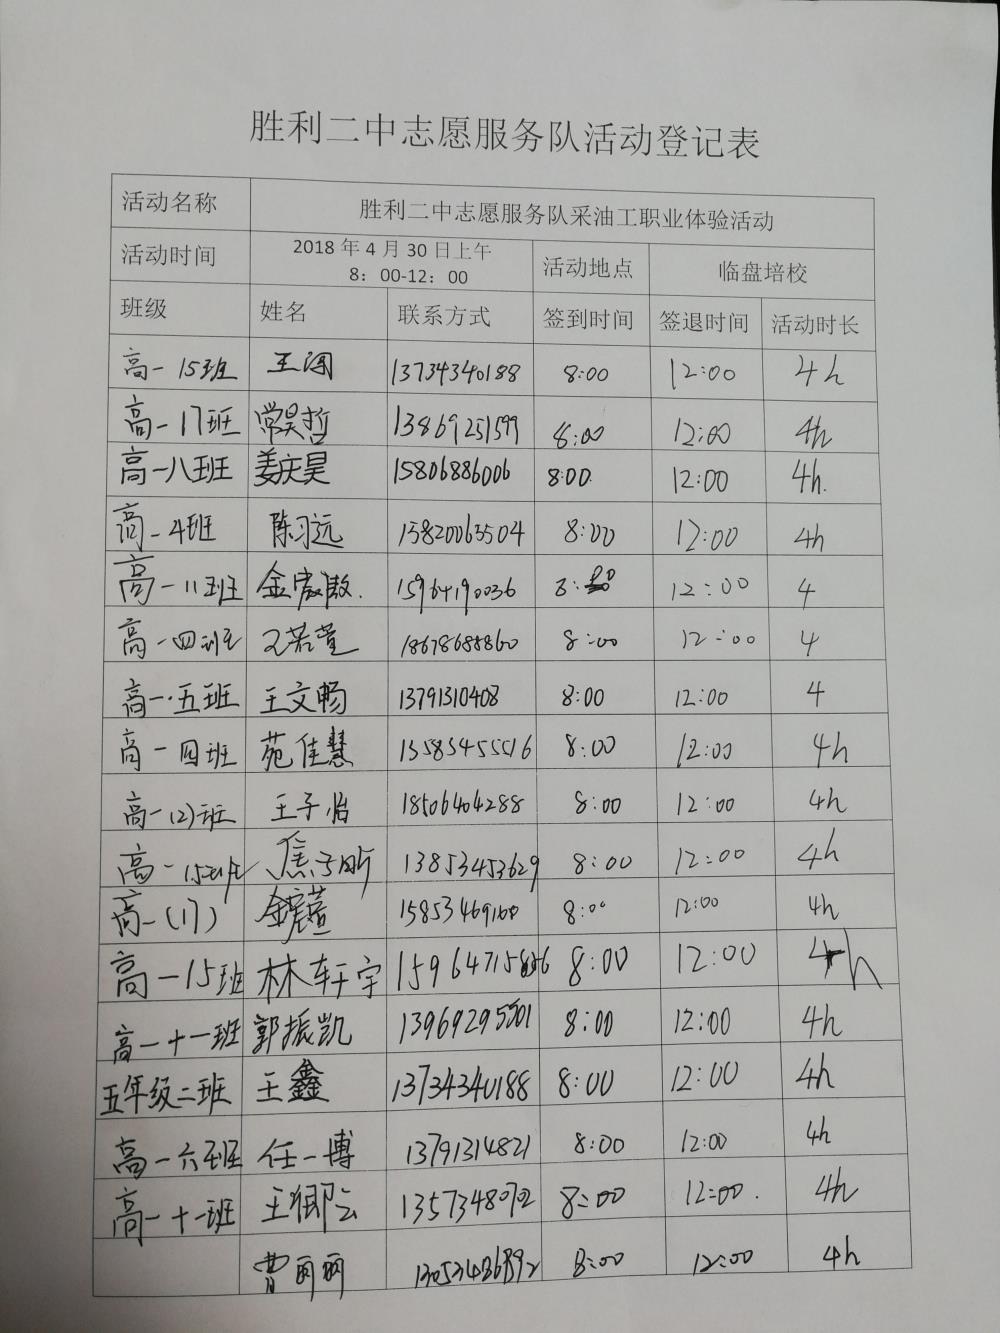 胜利二中志愿服务队活动登记表
活动名称 胜利二中志愿服务队采油工职业体验活动
活动时间 2018 年 4 月 30 日上午 8：00-12：00 活动地点 临盘培校
班级 姓名 联系方式 签到时间 签退时间 活动时长
高一 15班 王阔 13734340188 8:00 12:00 4h
高一17班 常昊哲 13869251599 8:00 12:00 4h
高一八班 姜庆昊 15806886006 8:00. 12:00 4h.
高一4班 陈习远 15820063504 8:00 12:00 4h
高一11班 金 15964190036 8: 12:00 4
高一四班 王若萱 18678688860 8:00 12:00 4
高一.五班 王文畅 13791310408 8:00 12:00 4
高一四班 苑佳慧 13583455516 8:00 12:00 4h
高一(2)班 王子怡 18506404288 8:00 12:00 4h
高一15班 焦子昕 13853453629 8:00 12:00 4h
高一(17) 15853469160 8:00 12:00 4h
高一15班 林轩宇 8:00 12:00 4h
高一十一班 郭振凯 13969295501 8:00 12:00 4h
五年级二班 王鑫 13734340188 8:00 12:00 4h
高一六班 任一博 13791314821 8:00 12:00 4h
高一十一班 王卿云 13573480702 8:00 12:00. 4h
曹丽丽 13053486892 8:00 12:00 4h